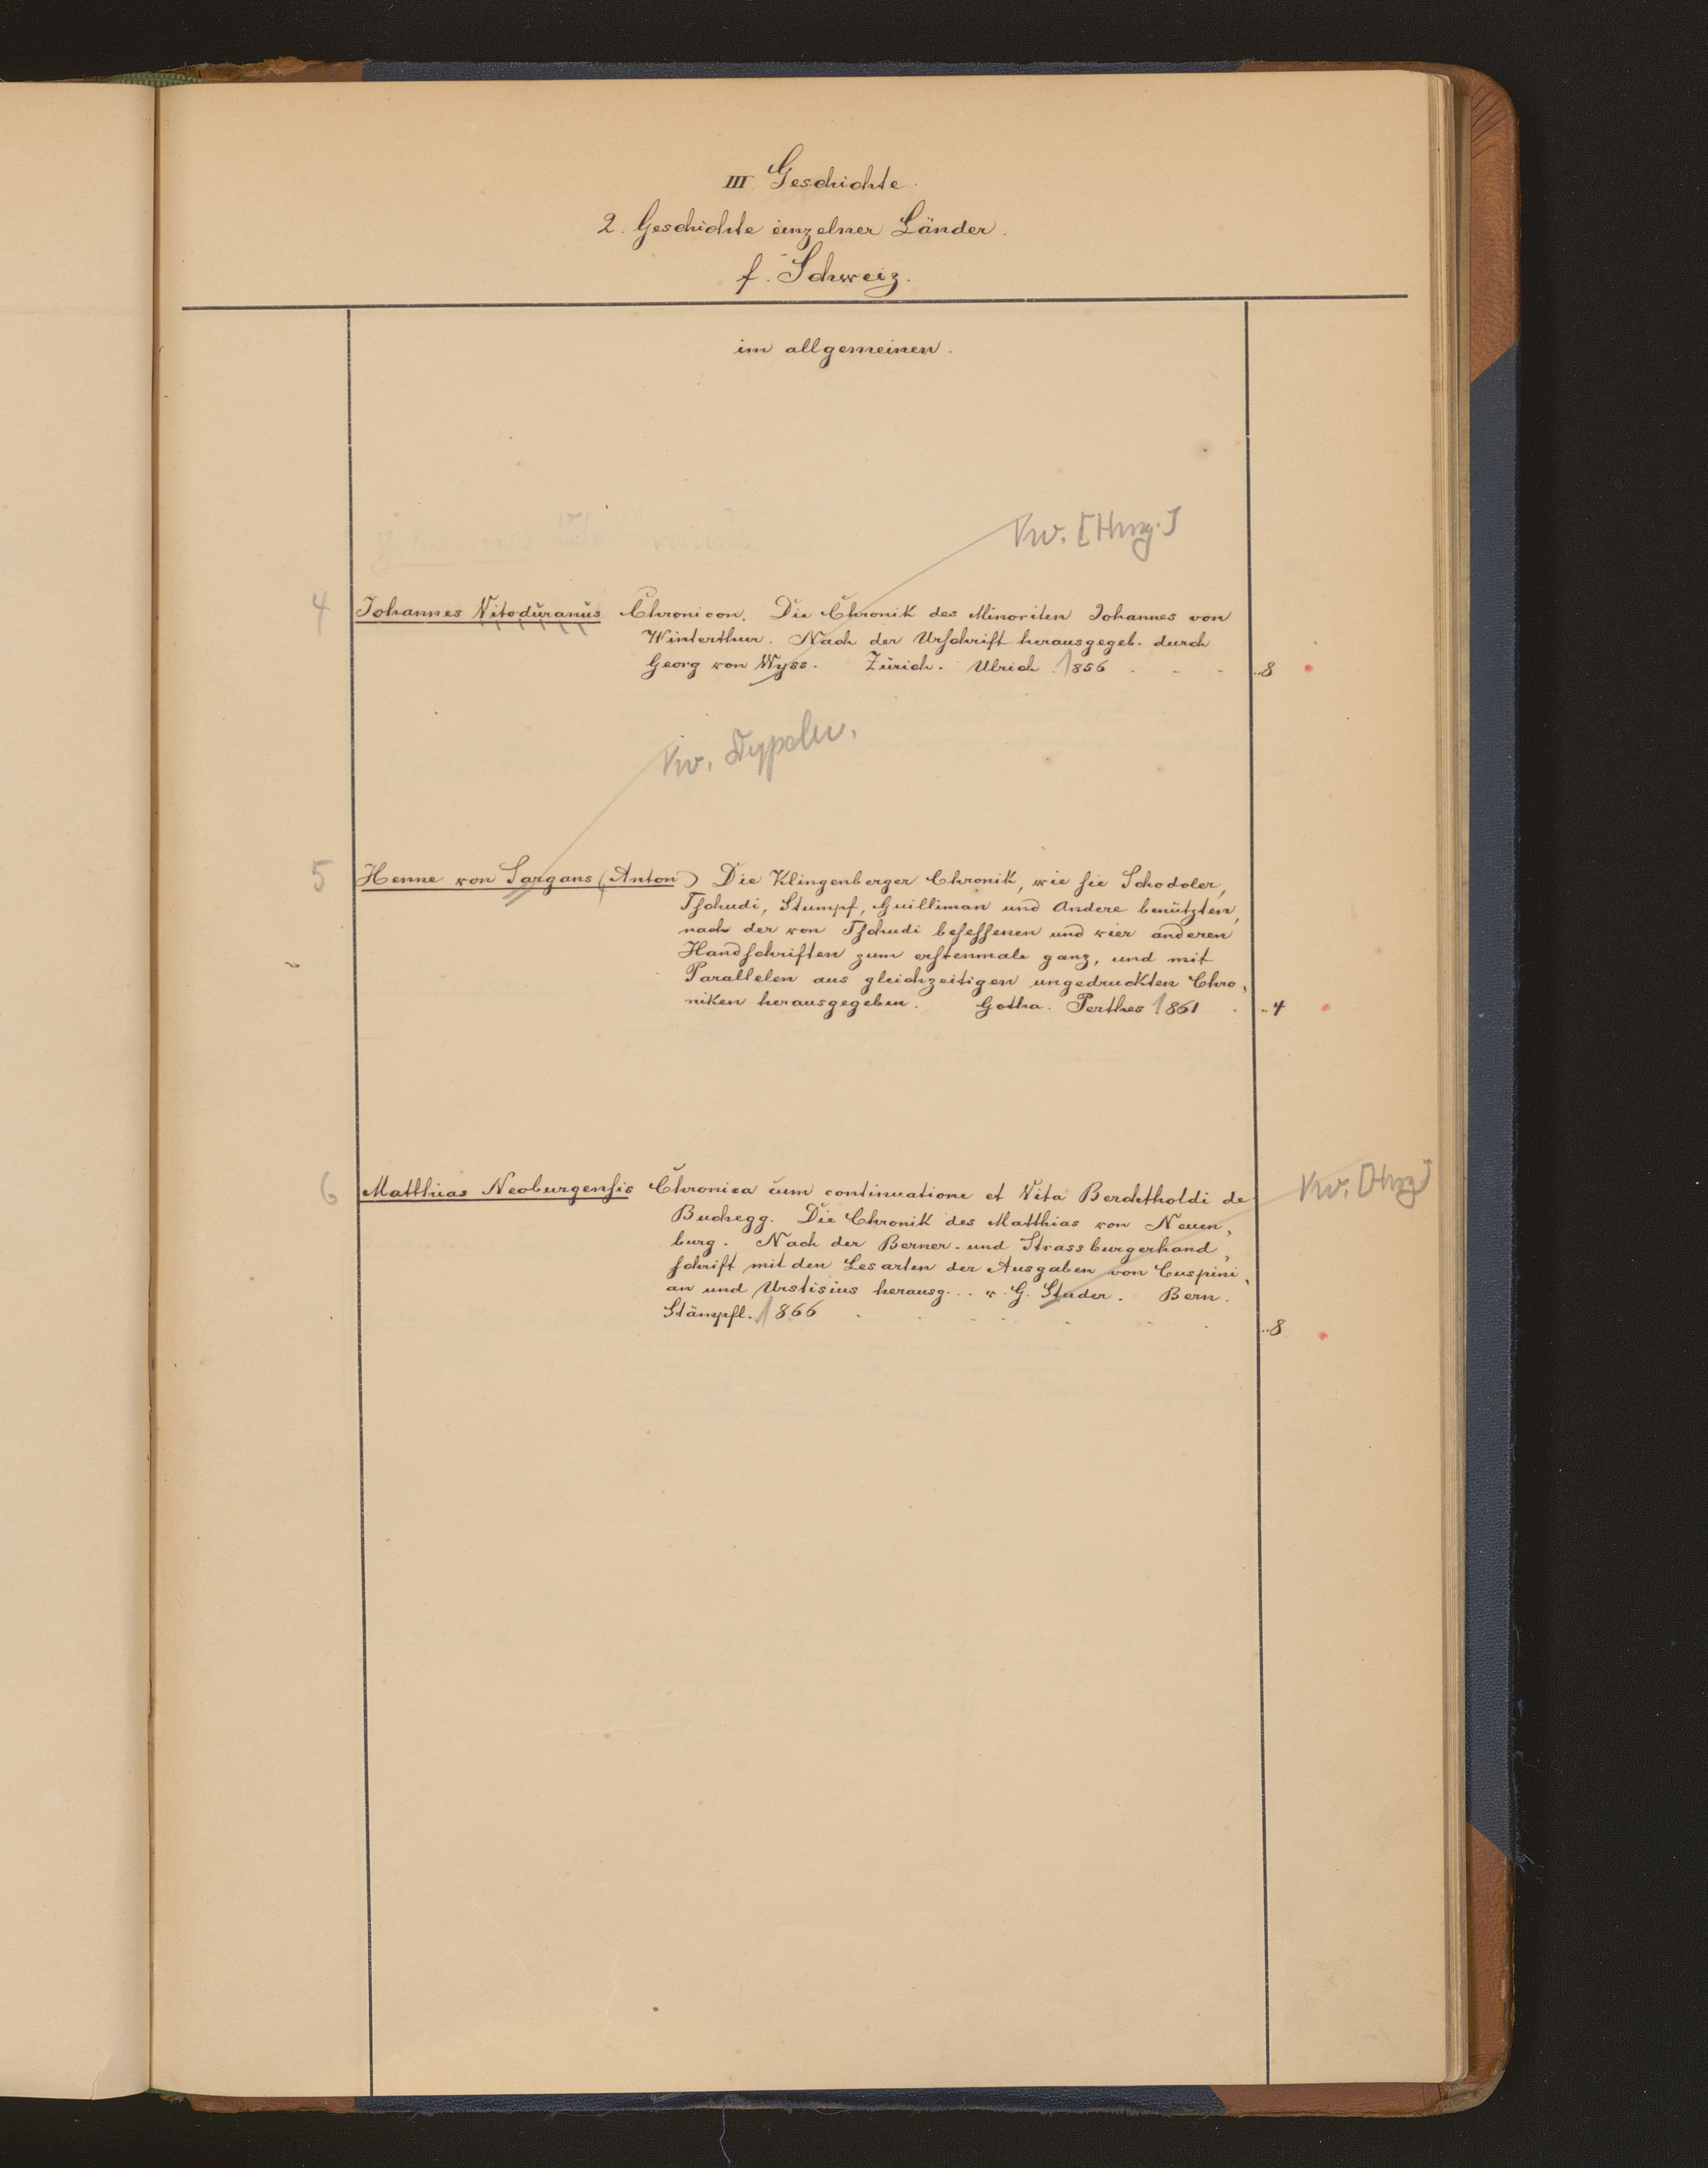 III. Geschichte.
2. Geschichte einzelner Länder.
f. Schweiz.
im allgemeinen.
Vw. [Hrsg.]
4 Johannes Vitoduranus Chronicon. Die Chronik des Minoriten Johannes von
Winterthur. Nach der Urschrift herausgegeb. durch
Georg von Wyss. Zürich. Ulrich 1856 . . . ..8
Vw.
5 Henne von Sargans (Anton) Die Klingenberger Chronik, wie sie Schodoler,
Tschudi, Stumpf, Guilliman und Andere benützten,
nach der von Tschudi besessenen und vier anderen
Handschriften zum erstenmale ganz, und mit
Parallelen aus gleichzeitigen ungedruckten Chro-
niken herausgegeben. Gotha. Perthes 1861 . ..4
6 Matthias Neoburgensis Chronica cum continuatione et Vita Berchtholdi de
Buchegg. Die Chronik des Matthias von Neuen-
burg. Nach der Berner- und Strassburgerhand-
schrift mit den Lesarten der Ausgaben von Cuspini-
an und Urstisius herausg... v. G. Studer. Bern.
Stämpfl. 1866 . . . . . . ..8
Vw. [Hrsg]